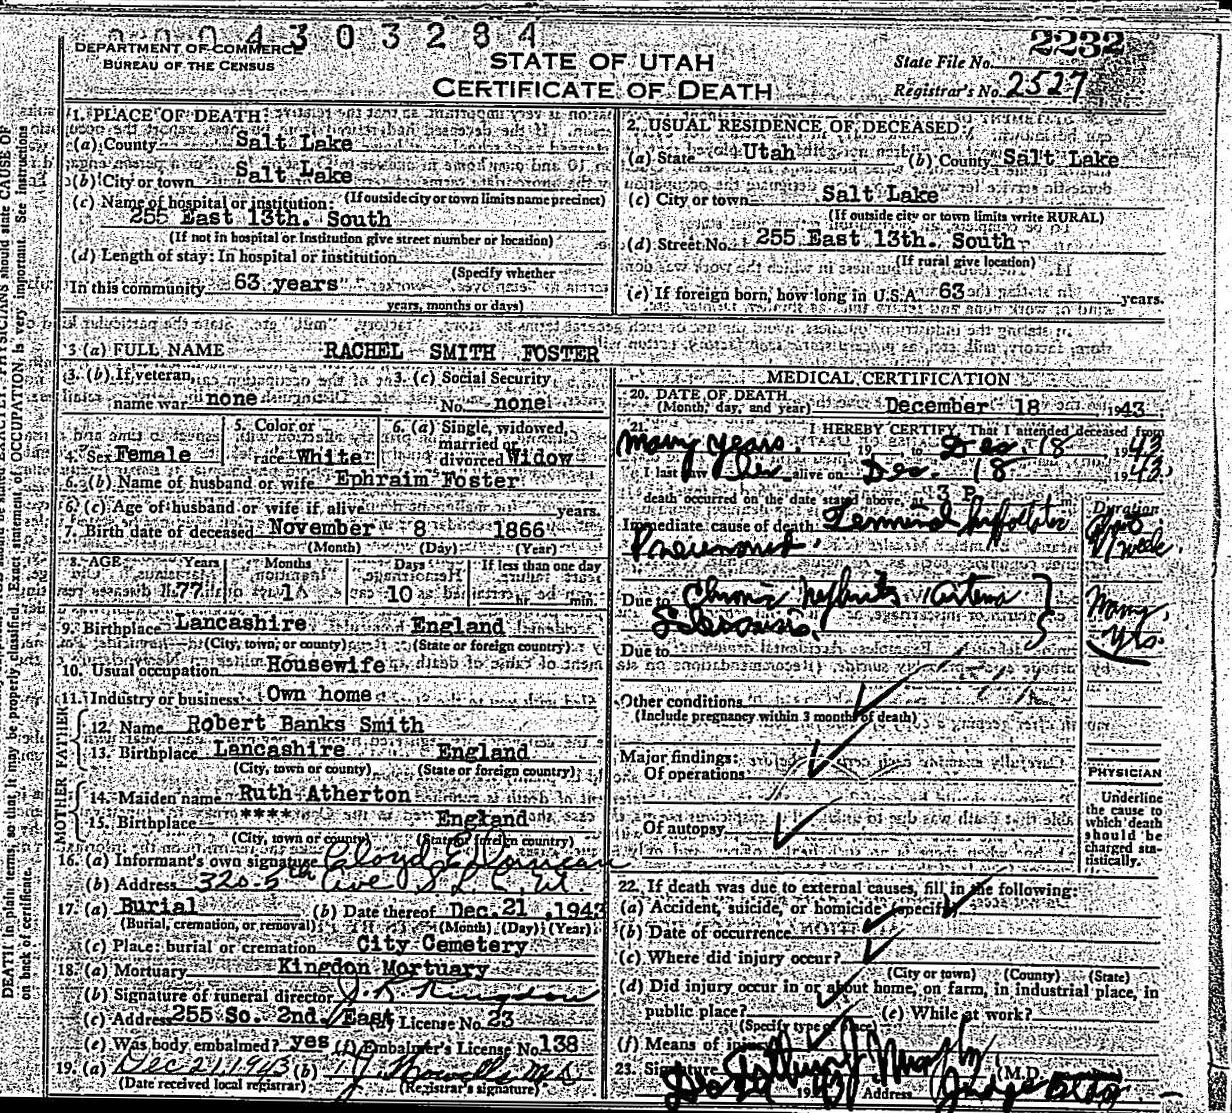 0 4 3 0 3 2 8 4
DEPARTMENT OF COMMERCE
BUREAU OF THE CENSUS
STATE OF UTAH
CERTIFICATE OF DEATH
State File No. 2232
Registrar's No. 2527
1. PLACE OF DEATH:
(a) County Salt Lake
(b) City or town Salt Lake
(If outside city or town limits name precinct)
(c) Name of hospital or institution:
255 East 13th. South
(If not in hospital or institution give street number or location)
(d) Length of stay: In hospital or institution
(Specify whether
In this community 63 years
years, months or days)
2. USUAL RESIDENCE OF DECEASED:
(a) State Utah (b) County Salt Lake
(c) City or town Salt Lake
(If outside city or town limits write RURAL)
(d) Street No. 255 East 13th. South
(If rural give location)
(e) If foreign born, how long in U.S.A. 63 years.
3 (a) FULL NAME RACHEL SMITH FOSTER
3. (b) If veteran, name war none
3. (c) Social Security No. none
4. Sex Female
5. Color or race White
6. (a) Single, widowed, married or divorced Widow
6. (b) Name of husband or wife Ephraim Foster
6. (c) Age of husband or wife if alive years.
7. Birth date of deceased November 8 1866
(Month) (Day) (Year)
8. AGE Years Months Days If less than one day
77 1 10 hr. min.
9. Birthplace Lancashire England
(City, town, or county) (State or foreign country)
10. Usual occupation Housewife
11. Industry or business Own home
FATHER
12. Name Robert Banks Smith
13. Birthplace Lancashire England
(City, town or county) (State or foreign country)
MOTHER
14. Maiden name Ruth Atherton
15. Birthplace **** England
(City, town or county) (State or foreign country)
16. (a) Informant's own signature
(b) Address 320-5th Ave S.L.C. Ut.
17. (a) Burial (b) Date thereof Dec. 21, 1943
(Burial, cremation, or removal) (Month) (Day) (Year)
(c) Place: burial or cremation City Cemetery
18. (a) Mortuary Kingdon Mortuary
(b) Signature of funeral director J. R. Kingdon
(c) Address 255 So. 2nd. East License No. 23
(e) Was body embalmed? yes (f) Embalmer's License No. 138
19. (a) Dec 21, 1943 (b)
(Date received local registrar) (Registrar's signature)
MEDICAL CERTIFICATION
20. DATE OF DEATH
(Month, day, and year) December 18 1943
21. I HEREBY CERTIFY, That I attended deceased from
many years 19 , to Dec. 18 1943
I last saw her alive on Dec. 18 1943
death occurred on the date stated above, at 3 P m.
Duration
Immediate cause of death Terminal
Pneumonia. week.
Due to Chronic Nephritis
Sclerosis. Many yrs.
Due to
Other conditions
(Include pregnancy within 3 months of death)
Major findings:
Of operations
Of autopsy
PHYSICIAN
Underline
the cause to
which death
should be
charged sta-
tistically.
22. If death was due to external causes, fill in the following:
(a) Accident, suicide, or homicide (specify)
(b) Date of occurrence
(c) Where did injury occur?
(City or town) (County) (State)
(d) Did injury occur in or about home, on farm, in industrial place, in
public place? (e) While at work?
(Specify type of place)
(f) Means of injury
23. Signature (M.D.
19 43 Address Judge Bldg